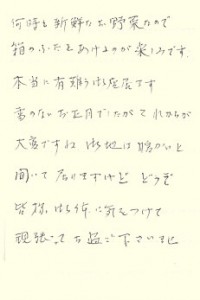 何時も新鮮なお野菜なので
箱のふたをあけるのが楽しみです。
本当に有難う御座居ます
雪のないお正月でしたが これからが
大変ですね 御地は暖かいと
聞いて居りますけど どうぞ
皆様 お身体に気をつけて
頑張ってお過ご下さいませ